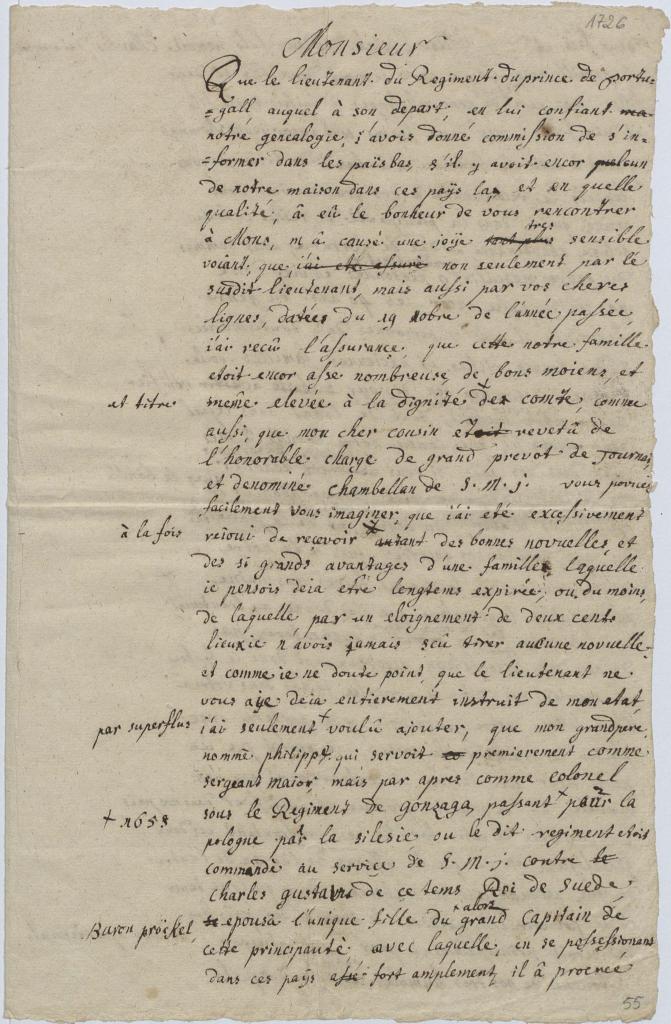 1726
Monsieur
Que le lieutenant du Regiment du prince de portu-
=gall auquel à son depart, en lui confiant ma
notre genealogie, j'avois donné commission de s'in=
=former dans les païsbas, s'il y avoit encor quelcun
de notre maison dans ces païs la, et en quelle
qualité, â eû le bonheur de vous rencontrer
à Mons, m'â causé une joÿe tout plus tres sensible
voiant, que j'ai eté assuré non seulement par le
susdit lieutenant, mais aussi par vos cheres
lignes, datées du 19 nobre de l'année passée,
j'ai recû l'assurance, que cette notre famille
etoit encor assé nombreuse, de bons moiens, et
et titre
même elevée à la dignité des comte, comme
aussi, que mon cher cousin etoit revetû de
l'honorable charge de grand prevôt de Tournai
et denominé chambellan de S. M. J. vous pouvés
facilement vous imaginer, que j'ai eté excessivement
à la fois
rejoui de recevoir autant des bonnes nouvelles, et
des si grands avantages d'une famille, laquelle
je pensois deia etre longtems expirée, ou du moins,
de laquelle par un eloignement de deux cents
lieux je n'avois jamais seû tirer aucune nouvelle
et comme je ne doute point, que le lieutenant ne
vous aÿe deia entierement instruit de mon etat,
par superflus
j'ai seulement + voulû ajouter, que mon grandpere
nommé philippe qui servoit premierement comme
sergeant maior, mais par apres comme colonel
sous le Regiment de gonzaga, passant + pour la
+ 1658
pologne par la silesie ou le dit regiment etoit
commandé au service de S. M. J. contre le
Charles gustave de ce tems Roi de Suede,
epousâ l'unique fille du alors grand Capitain de
Baron pröckel,
cette principauté avec laquelle, en se possessionant
dans ces païs assé fort amplement, il â procreé
55